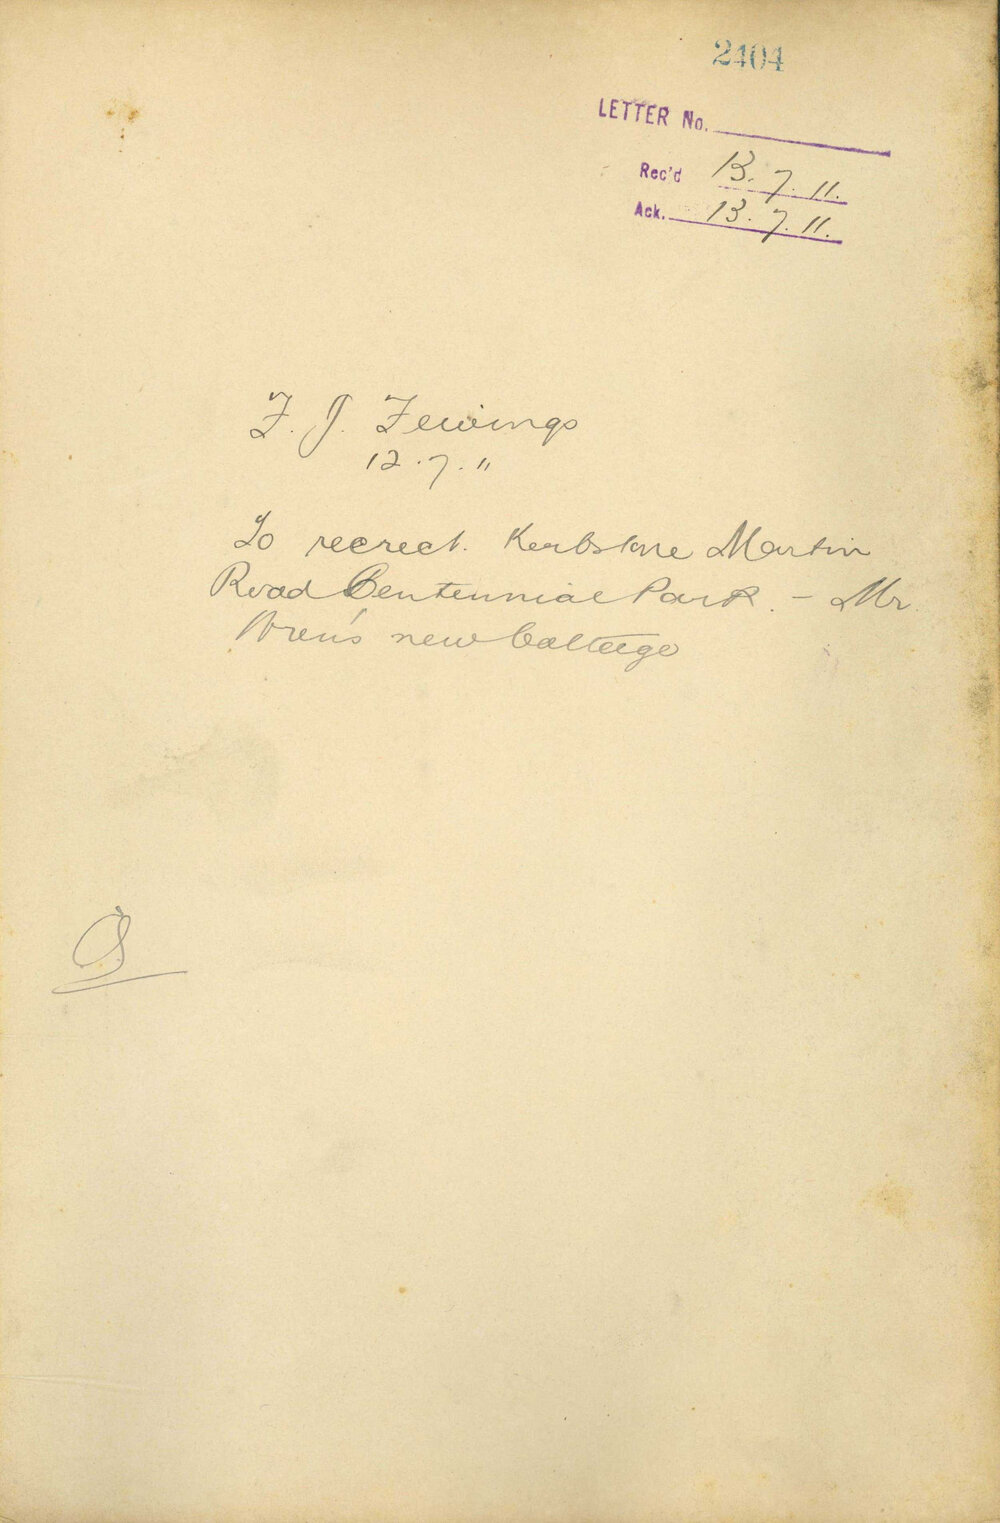 2404
LETTER No.
Rec'd 13.7.11.
Ack. 13.7.11.
F. J. Fewings
12.7.11
To recrect. Kerbstone Martin
Road Centennial Park. - Mr.
new